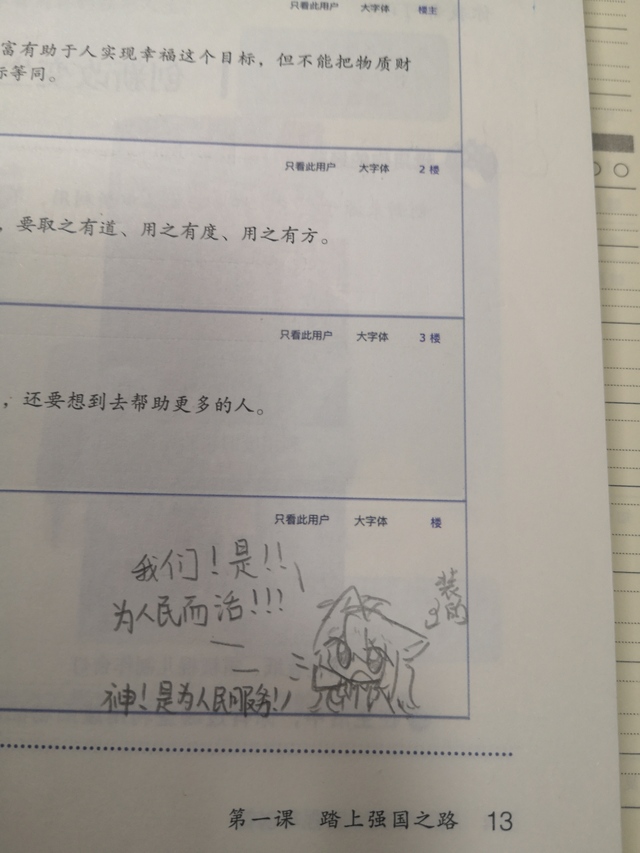 只看此用户 大字体 楼主
富有助于人实现幸福这个目标，但不能把物质财
标等同。
只看此用户 大字体 2 楼
，要取之有道、用之有度、用之有方。
只看此用户 大字体 3 楼
，还要想到去帮助更多的人。
只看此用户 大字体 楼
我们！是！！
为人民而活！！！
装
的
神！是为人民服务！
第一课 踏上强国之路 13